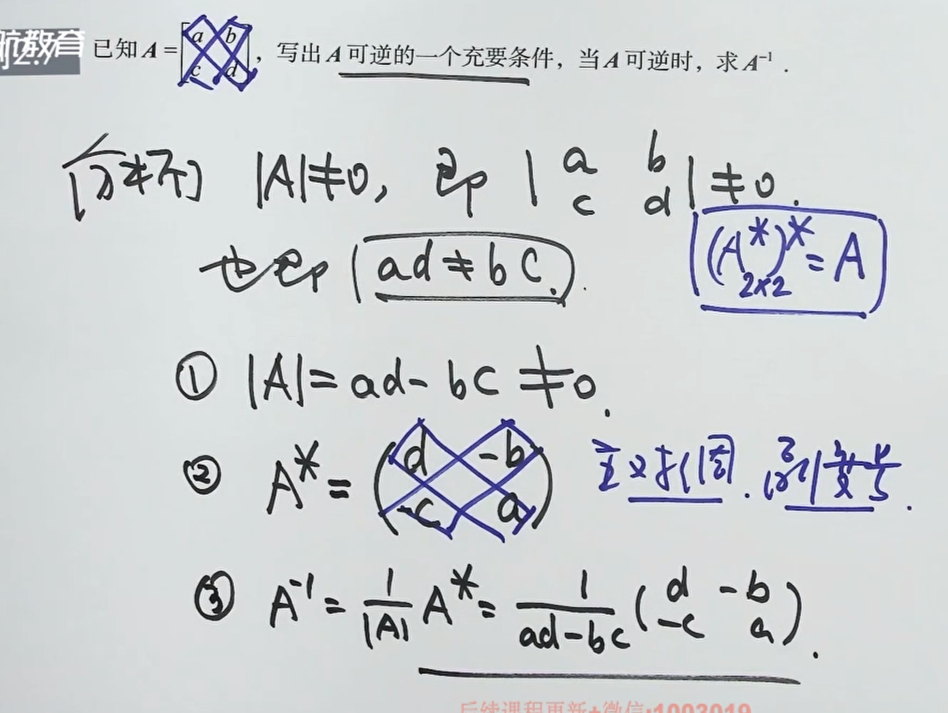 航教育
已知 A = [a b; c d], 写出 A 可逆的一个充要条件, 当 A 可逆时, 求 A⁻¹ .
[分析] |A|≠0, 即 | a b; c d | ≠0.
也即 ad≠bc.
(A*)* = A
2×2
① |A| = ad-bc ≠0.
② A* = (d -b; -c a) 主对调, 副变号.
③ A⁻¹ = 1/|A| A* = 1/(ad-bc) (d -b; -c a).
后续课程更新+微信:1003019